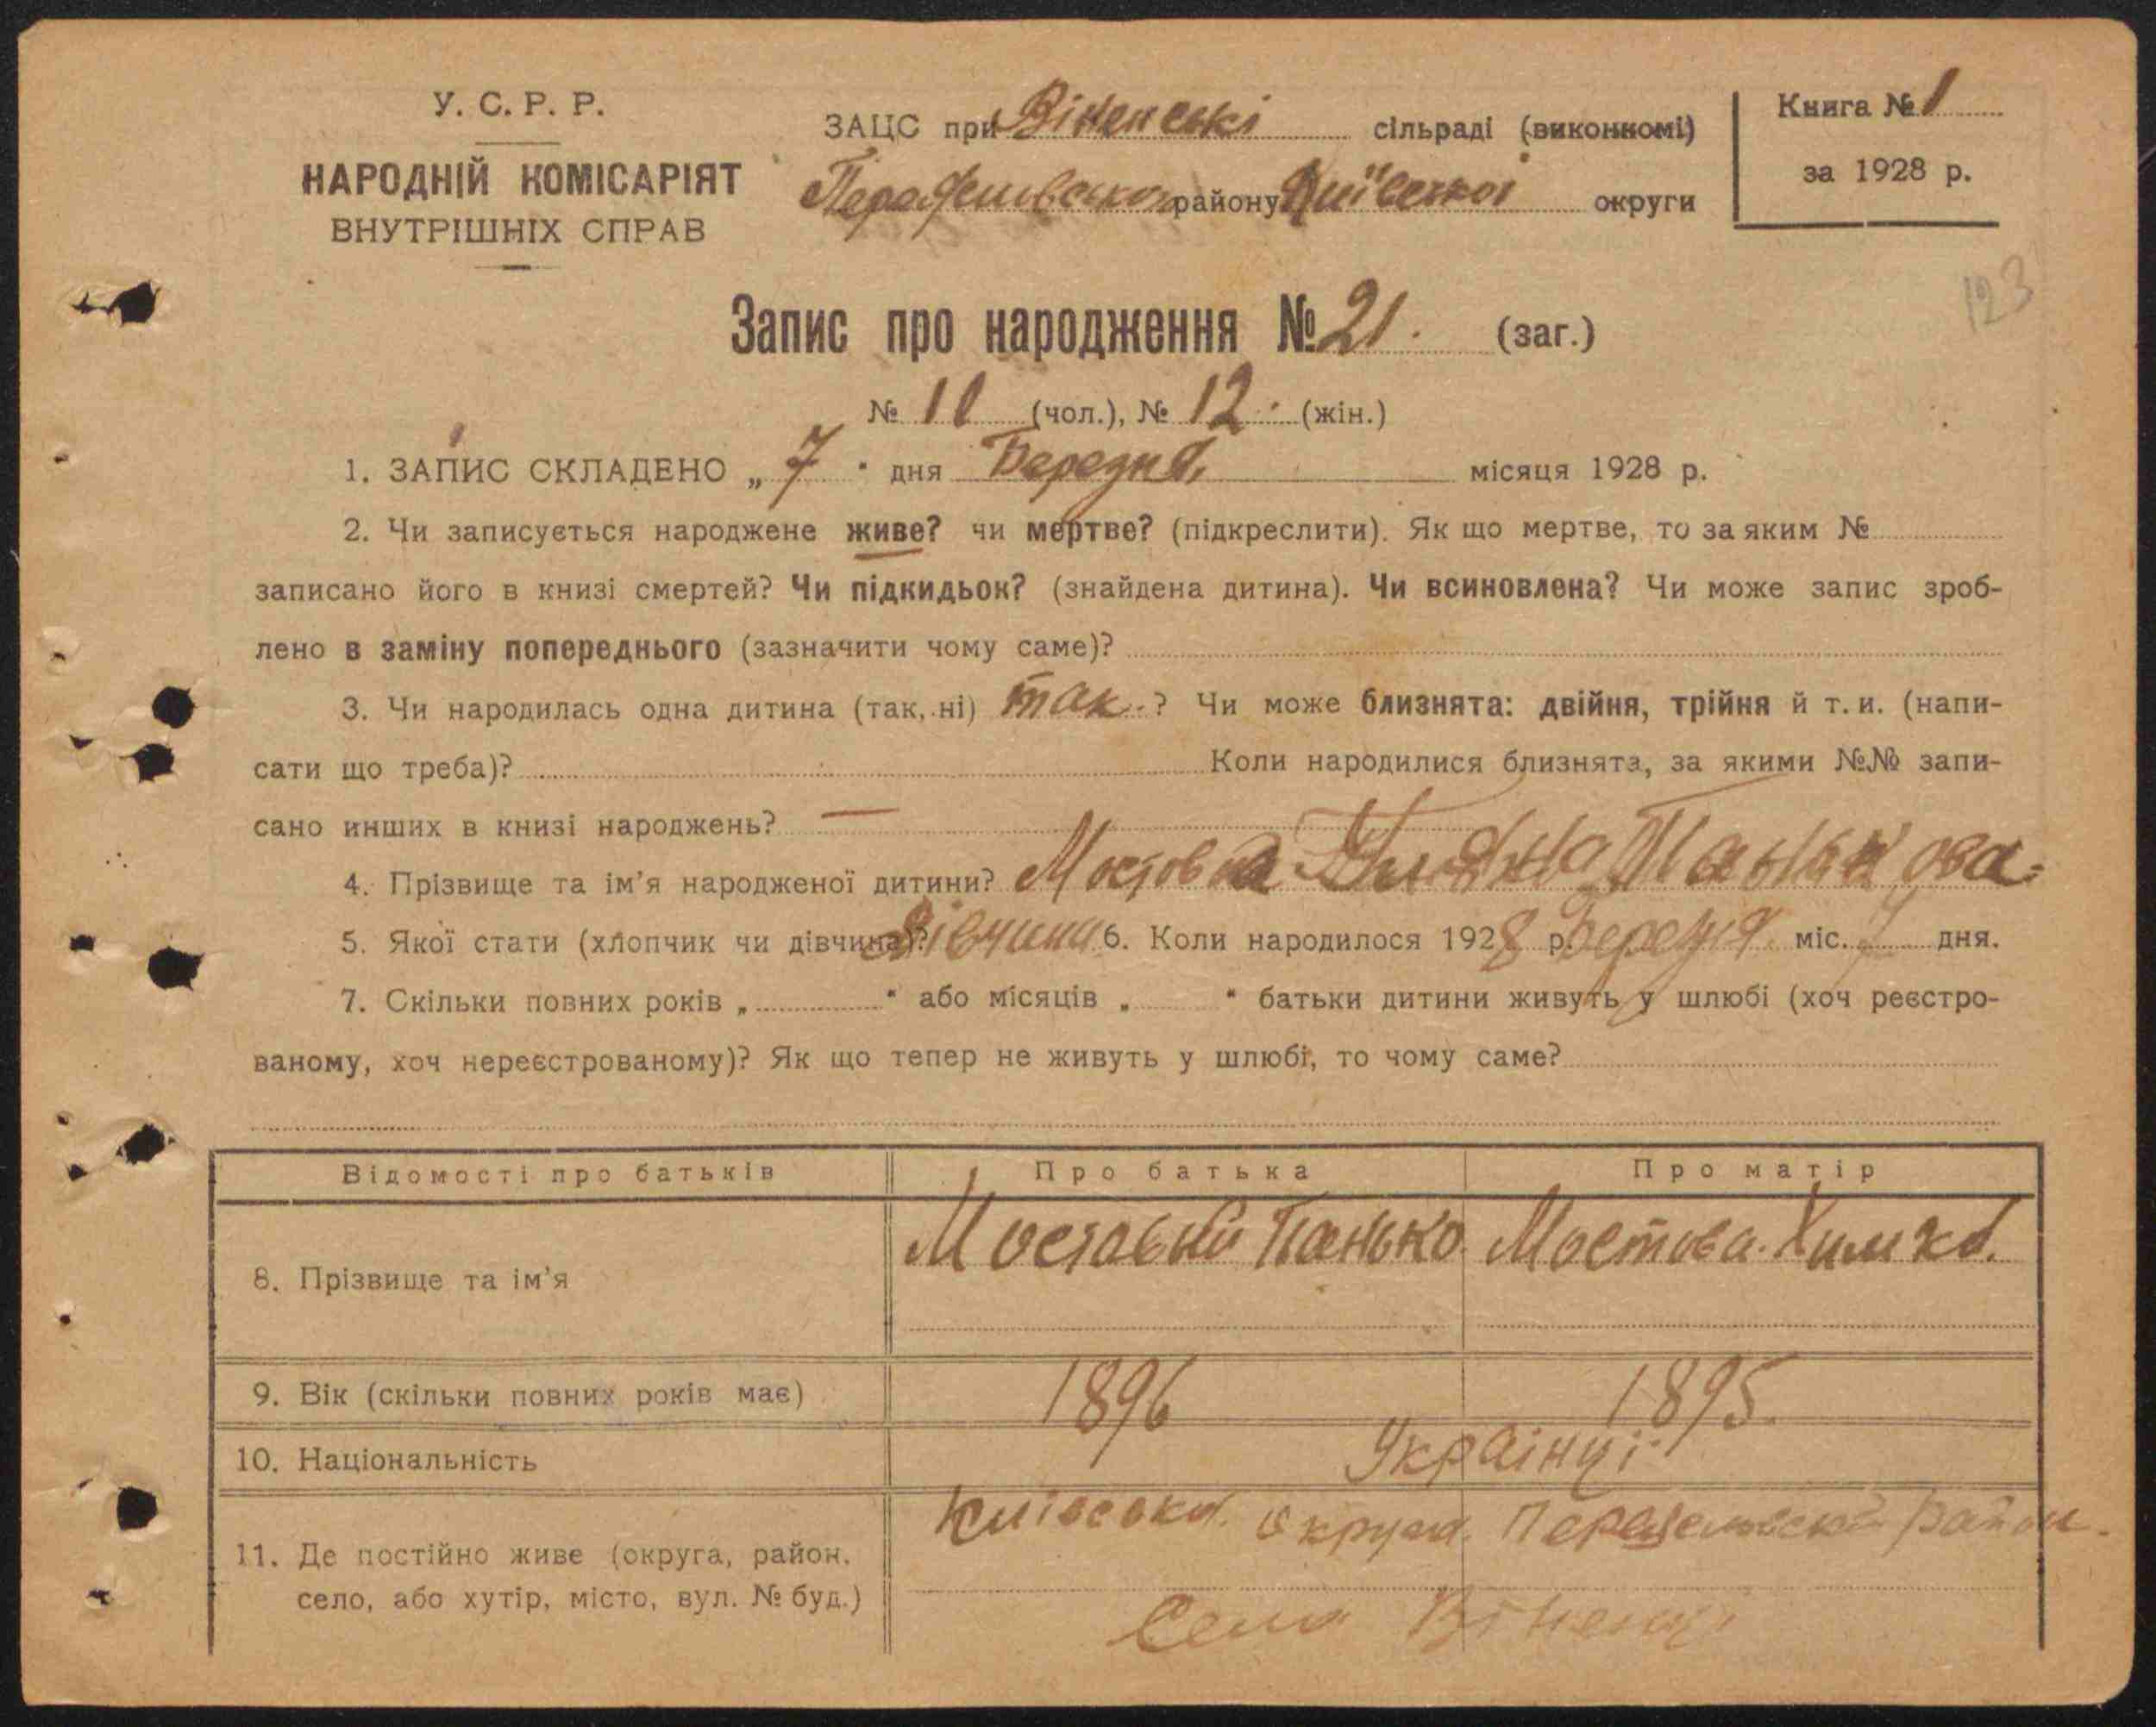 У. С. Р. Р.
НАРОДНІЙ КОМІСАРІЯТ
ВНУТРІШНІХ СПРАВ
ЗАЦС при Віненські сільраді (виконкомі)
району Київської округи
Книга № 1
за 1928 р.
123
Запис про народження № 21. (заг.)
№ 10 (чол.), № 12. (жін.)
1. ЗАПИС СКЛАДЕНО „ 7 " дня Березня місяця 1928 р.
2. Чи записується народжене живе? чи мертве? (підкреслити). Як що мертве, то за яким №
записано його в книзі смертей? Чи підкидьок? (знайдена дитина). Чи всиновлена? Чи може запис зроб-
лено в заміну попереднього (зазначити чому саме)?
3. Чи народилась одна дитина (так, ні) так. ? Чи може близнята: двійня, трійня й т. и. (напи-
сати що треба)? Коли народилися близнята, за якими №№ запи-
сано инших в книзі народжень? —
4. Прізвище та ім'я народженої дитини? Мостова Панькова
5. Якої стати (хлопчик чи дівчина)? Дівчина 6. Коли народилося 1928 р. Березня міс. 7 дня.
7. Скільки повних років „ " або місяців „ " батьки дитини живуть у шлюбі (хоч реєстро-
ваному, хоч нереєстрованому)? Як що тепер не живуть у шлюбі, то чому саме?
Відомості про батьків Про батька Про матір
8. Прізвище та ім'я Мостовий Панько. Мостова. Химка.
9. Вік (скільки повних років має) 1896 1895.
10. Національність Українці
11. Де постійно живе (округа, район, Київська. округа. район.
село, або хутір, місто, вул. № буд.) Село Віненці